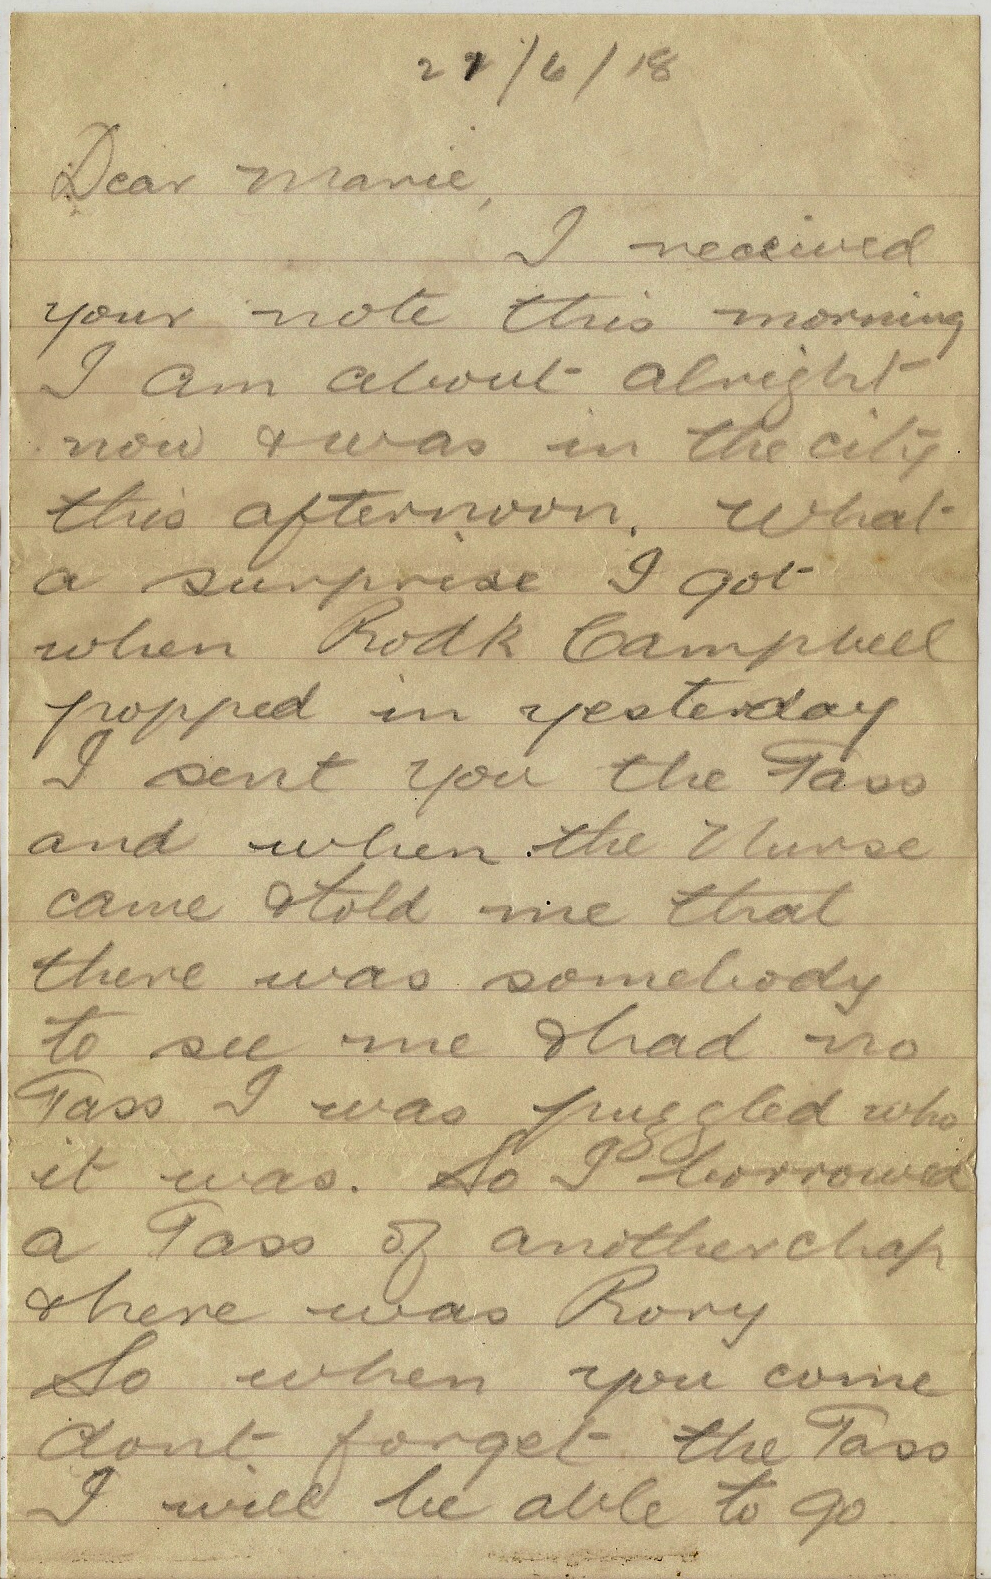 27/6/18
Dear Marie,
I received
your note this morning
I am about alright
now & was in the city
this afternoon. What
a surprise I got
when Rodk Campbell
popped in yesterday
I sent you the Pass
and when the Nurse
came & told me that
there was somebody
to see me & had no
Pass I was puzzled who
it was. So I borrowed
a Pass of another chap
& here was Rory
So when you come
dont forget the Pass
I will be able to go